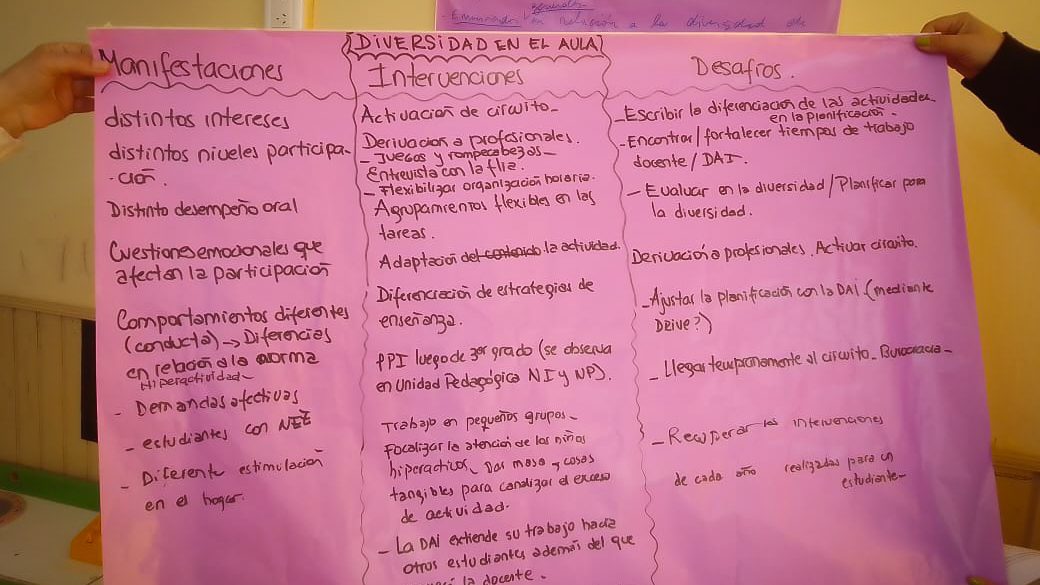 generales
Enumerador en relación a la diversidad de
[DIVERSIDAD EN EL AULA]
Manifestaciones
distintos intereses
distintos niveles participa-
-ción.
Distinto desempeño oral
Cuestiones emocionales que
afectan la participación
Comportamientos diferentes
(conducta) → Diferencias
en relación a la norma
Hiperactividad-
- Demandas afectivas
- estudiantes con NEE
- Diferente estimulación
en el hogar.
Intervenciones
Activación de circuito-
Derivación a profesionales.
- Juegos y rompecabezas-
Entrevista con la flia.
- Flexibilizar organización horaria.
Agrupamientos flexibles en las
tareas.
Adaptación del contenido la actividad.
Diferenciación de estrategias de
enseñanza.
PPI luego de 3er grado (se observa
en Unidad Pedagógica NI y NP).
Trabajo en pequeños grupos-
Focalizar la atención de los niños
hiperactivos. Dar masa y cosas
tangibles para canalizar el exceso
de actividad.
- La DAI extiende su trabajo hacia
otros estudiantes además del que
la docente.
Desafíos.
- Escribir la diferenciación de las actividades
en la planificación.
- Encontrar/fortalecer tiempos de trabajo
docente / DAI.
- Evaluar en la diversidad / Planificar para
la diversidad.
Derivación a profesionales. Activar circuito.
- Ajustar la planificación con la DAI (mediante
Drive?)
- Llegar tempranamente al circuito. Burocracia-
- Recuperar las intervenciones
de cada año realizadas para un
estudiante-